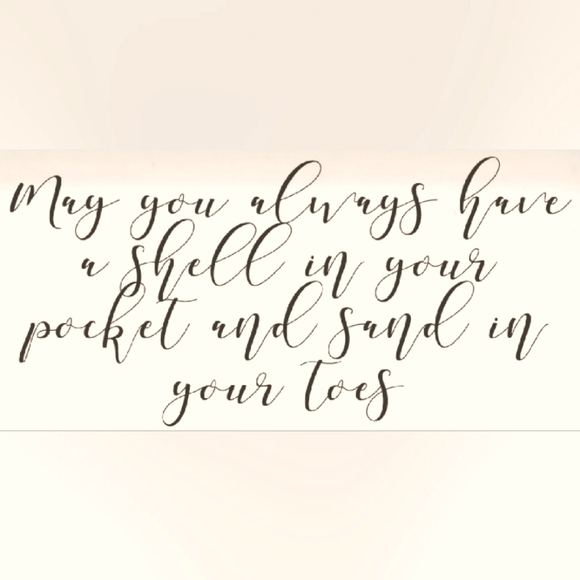 May you always have
a shell in your
pocket and sand in
your toes